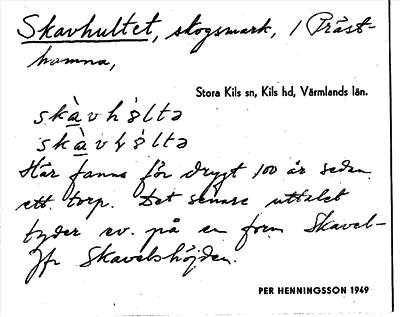 Skavhultet, skogsmark, i Präst-
bomna,
Stora Kils sn, Kils hd, Värmlands län.
skàvhòltə
skàvhòltə
Här fanns för drygt 100 år sedan
ett torp. Det senare uttalet
tyder ev. på en form Skavel-
Jfr Skavelshöjden.
PER HENNINGSSON 1949